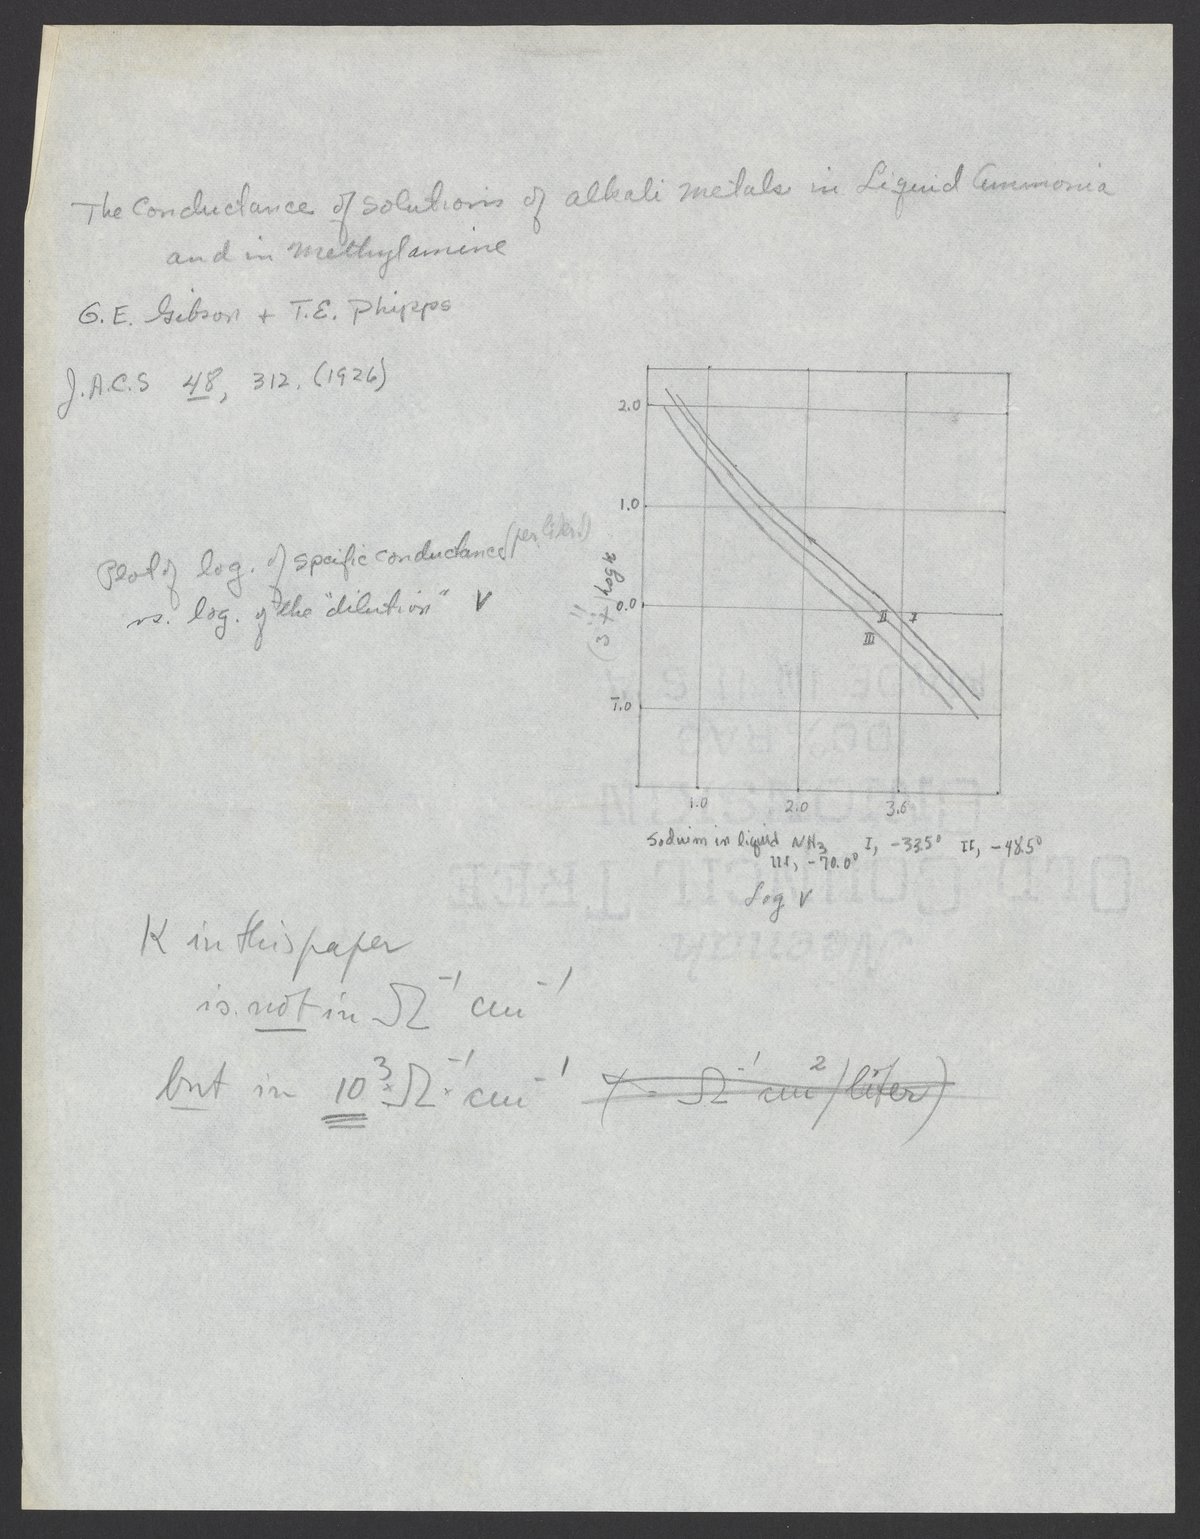 The Conductance of Solutions of alkali metals in Liquid Ammonia
and in Methylamine
G.E. Gibson + T.E. Phipps
J.A.C.S 48, 312. (1926)
Plot of log. of specific conductance (per liter!)
vs. log. of the "dilution" V
2.0
1.0
0.0
1̅.0
log κ
II I
III
1.0 2.0 3.0
Sodium in liquid NH3 I, -33.5° II, -48.5°
III, -70.0°
Log V
K in this paper
is not in Ω⁻¹ cm⁻¹
but in 10³ Ω⁻¹ cm⁻¹ (= Ω⁻¹ cm²/liter)
MADE IN U.S.A.
100% RAG
ONIONSKIN
OLD COUNCIL TREE
Neenah